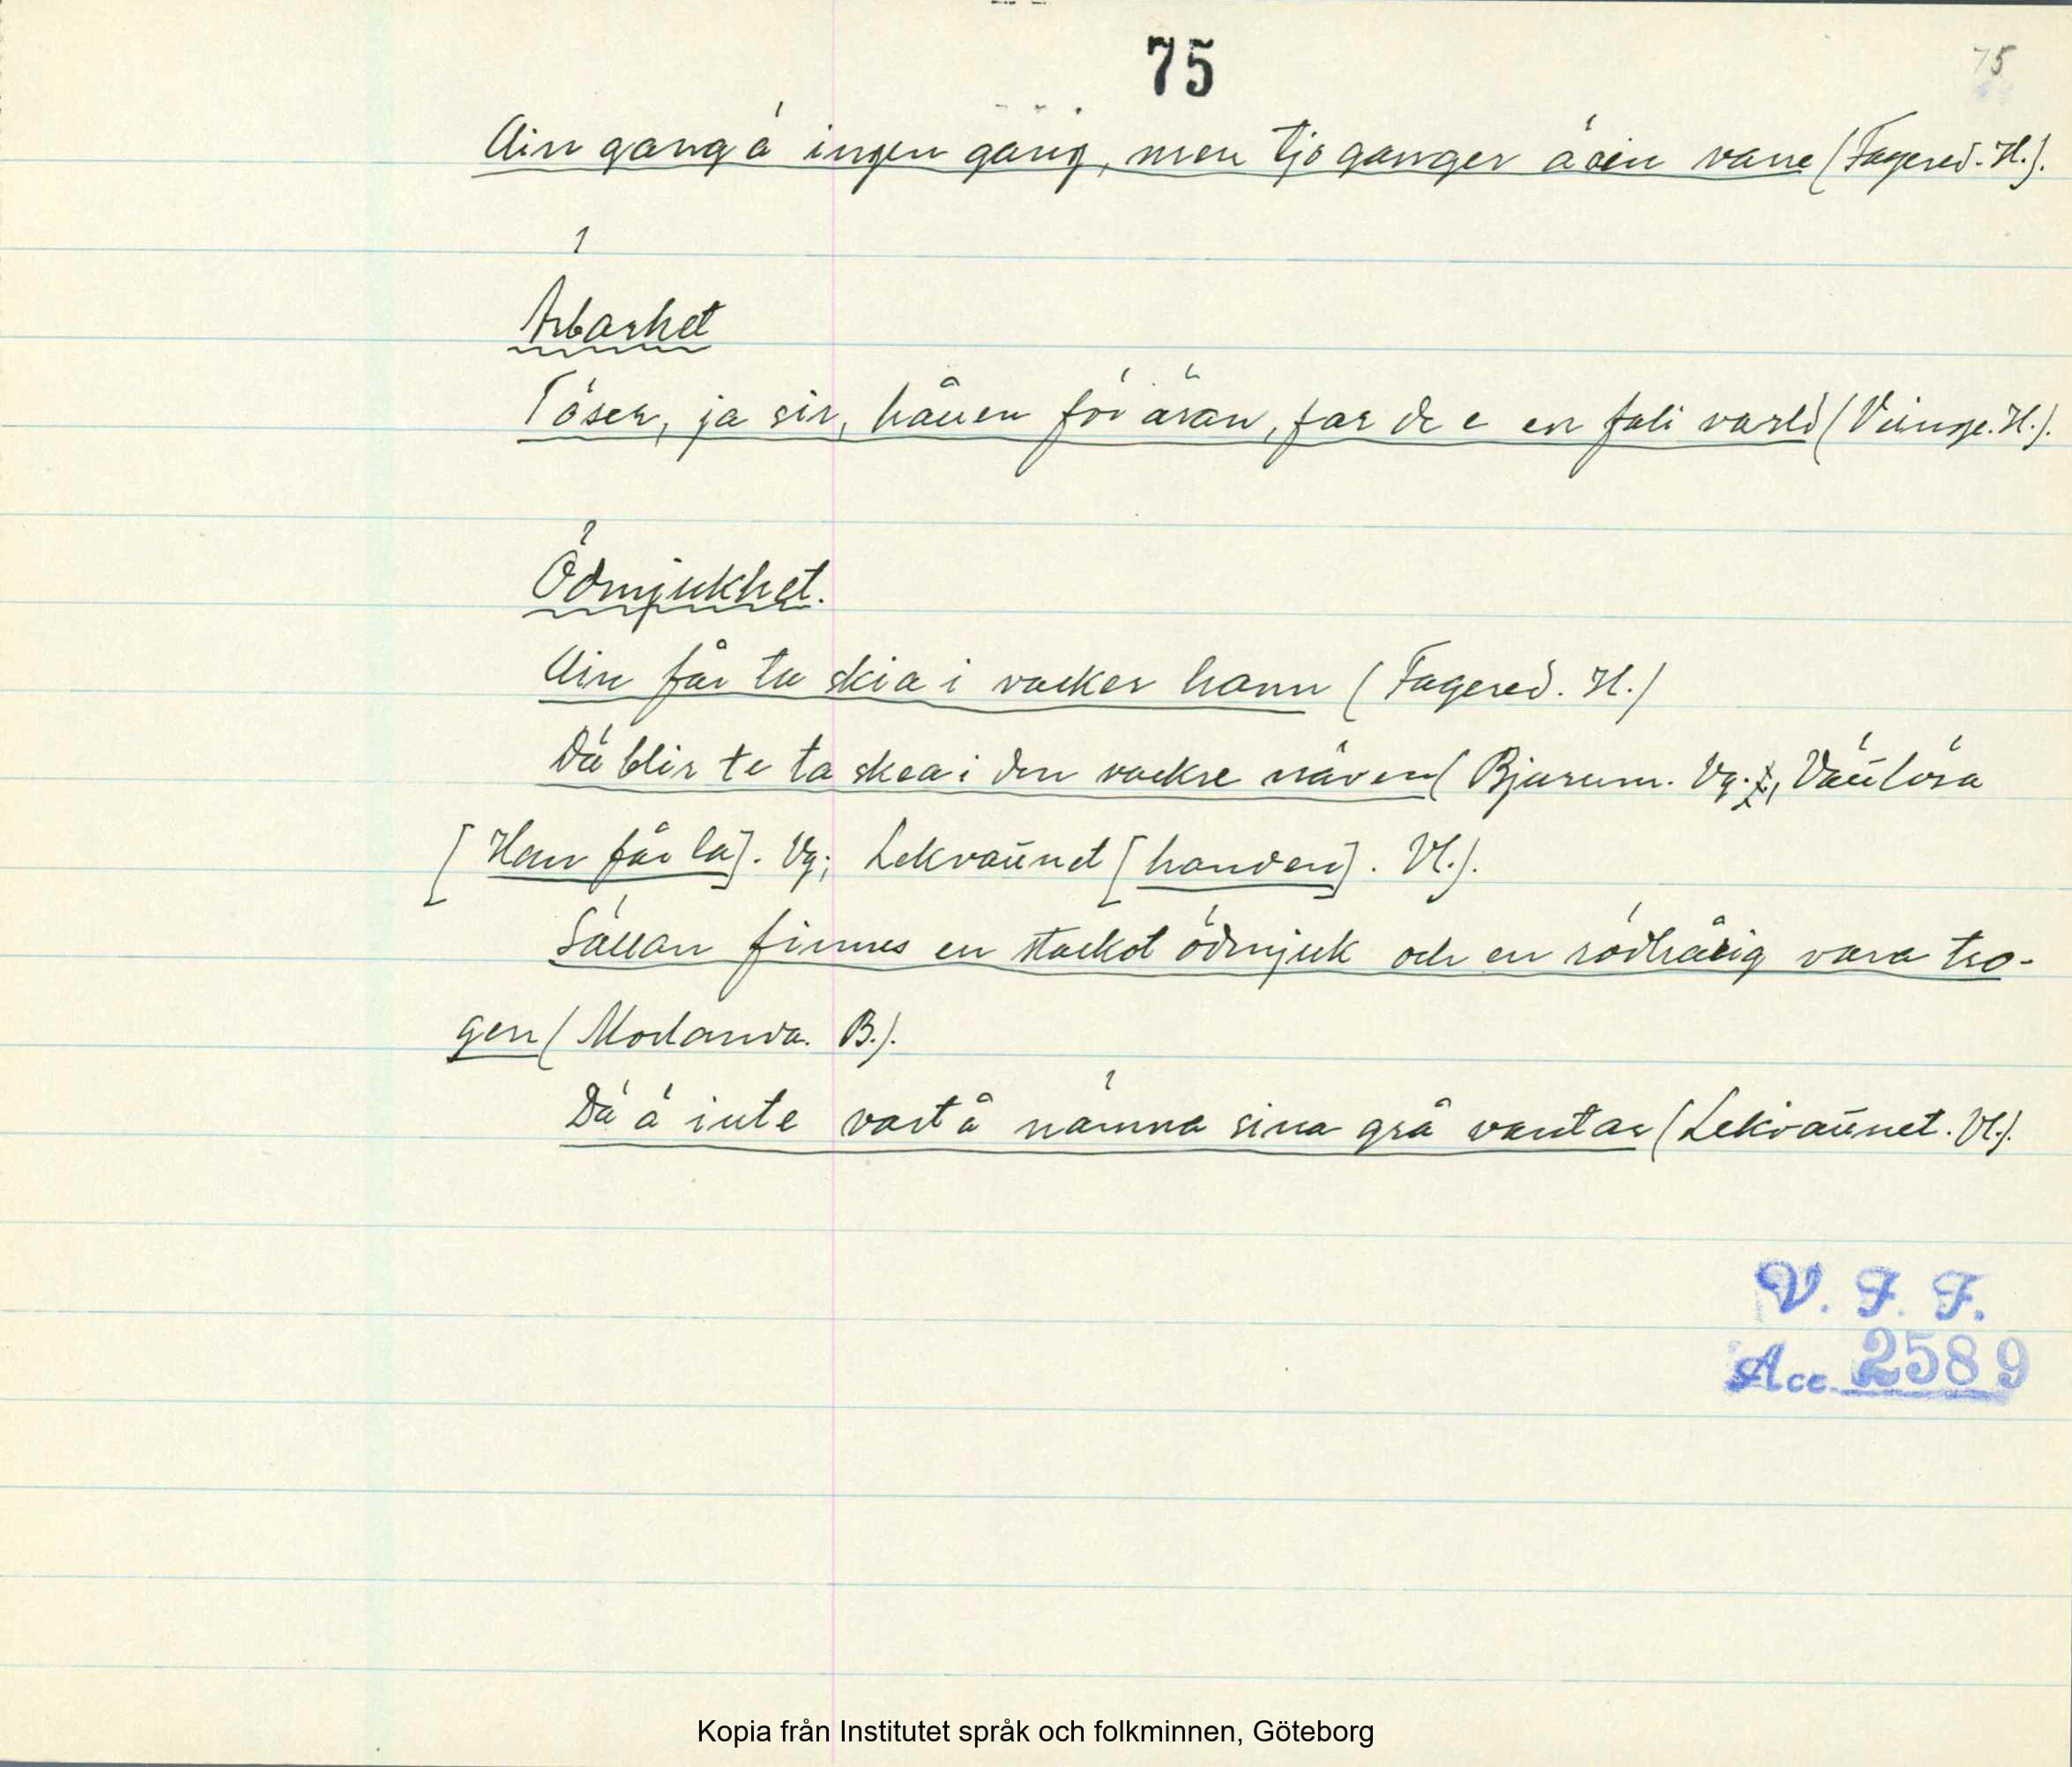 75
75
Ain gang ä ingen gång, men tjo ganger ä ain vane (Fagered. H.).
Ärbarhet
Töser, ja sir, håuen för äran, far de e en fali varld (Vinge. H.).
Ödmjukhet.
Ain får ta skia i vacker hann (Fagered. H.)
Dä blir te ta skea i den vackre näven (Bjurum. Vg.; Väulösa
[Han får la]. Vg; Lekvattnet [handen]. Vl.).
Sällan finnes en stackot ödmjuk och en rödhårig vara tro-
gen (Morlanda. B.).
Dä ä inte vart å nämna sina grå vantar (Lekvattnet. Vl.).
V. F. F.
Acc. 2589
Kopia från Institutet språk och folkminnen, Göteborg